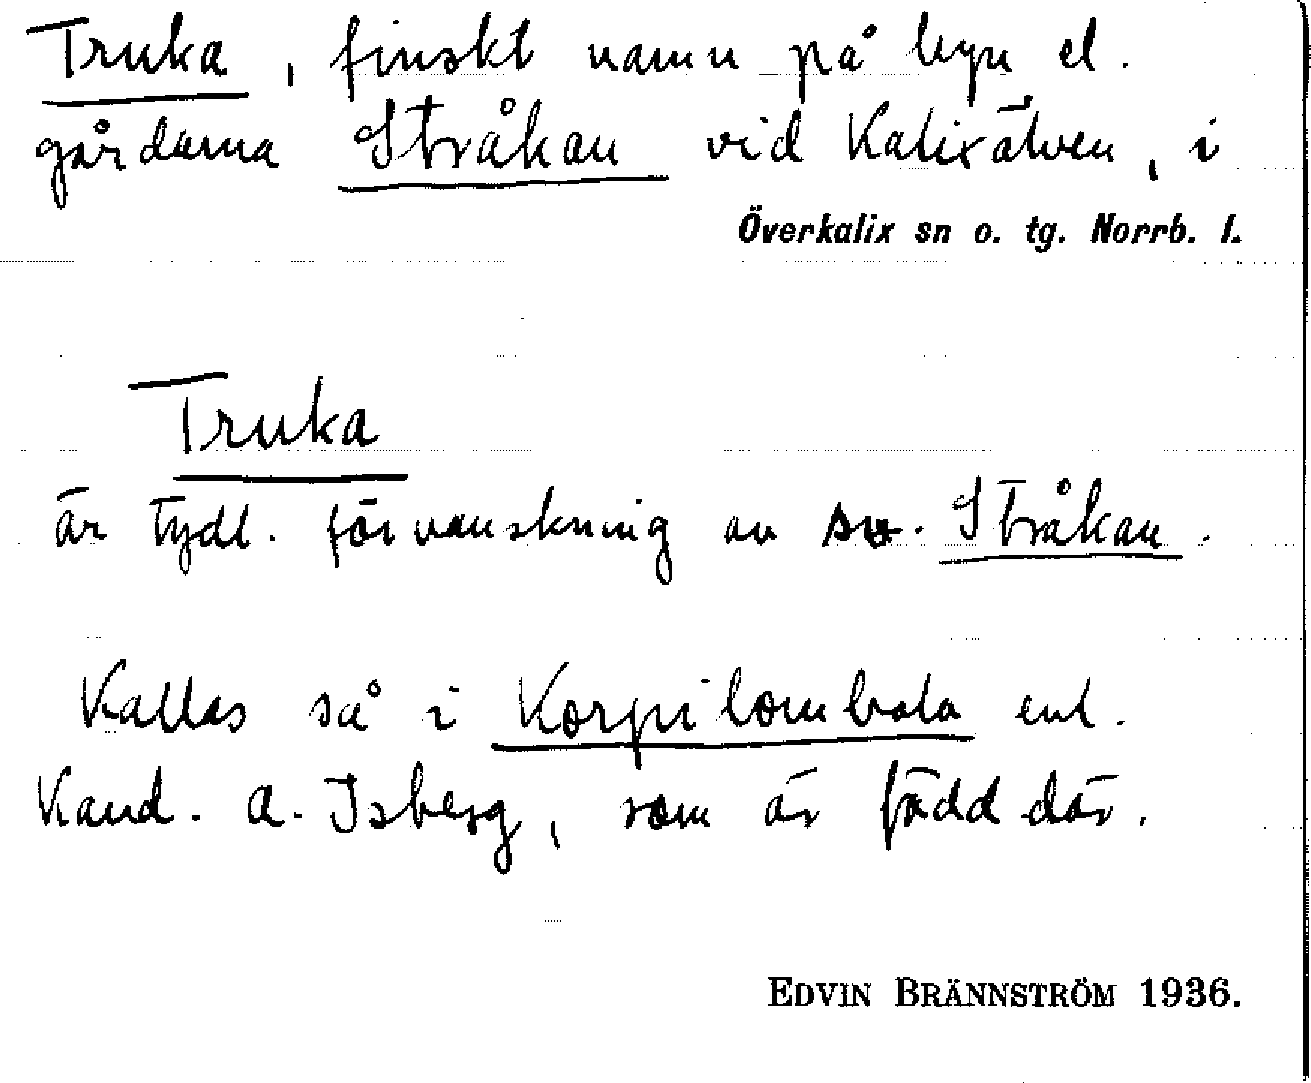 Truka, finskt namn på byn el.
gårdarna Stråkan vid Kalixälven, i
Överkalix sn o. tg. Norrb. l.
Truka
är tydl. förvanskning av sv. Stråkan.
Kallas så i Korpilombolo enl.
Kand. A. Isberg, som är född där.
EDVIN BRÄNNSTRÖM 1936.